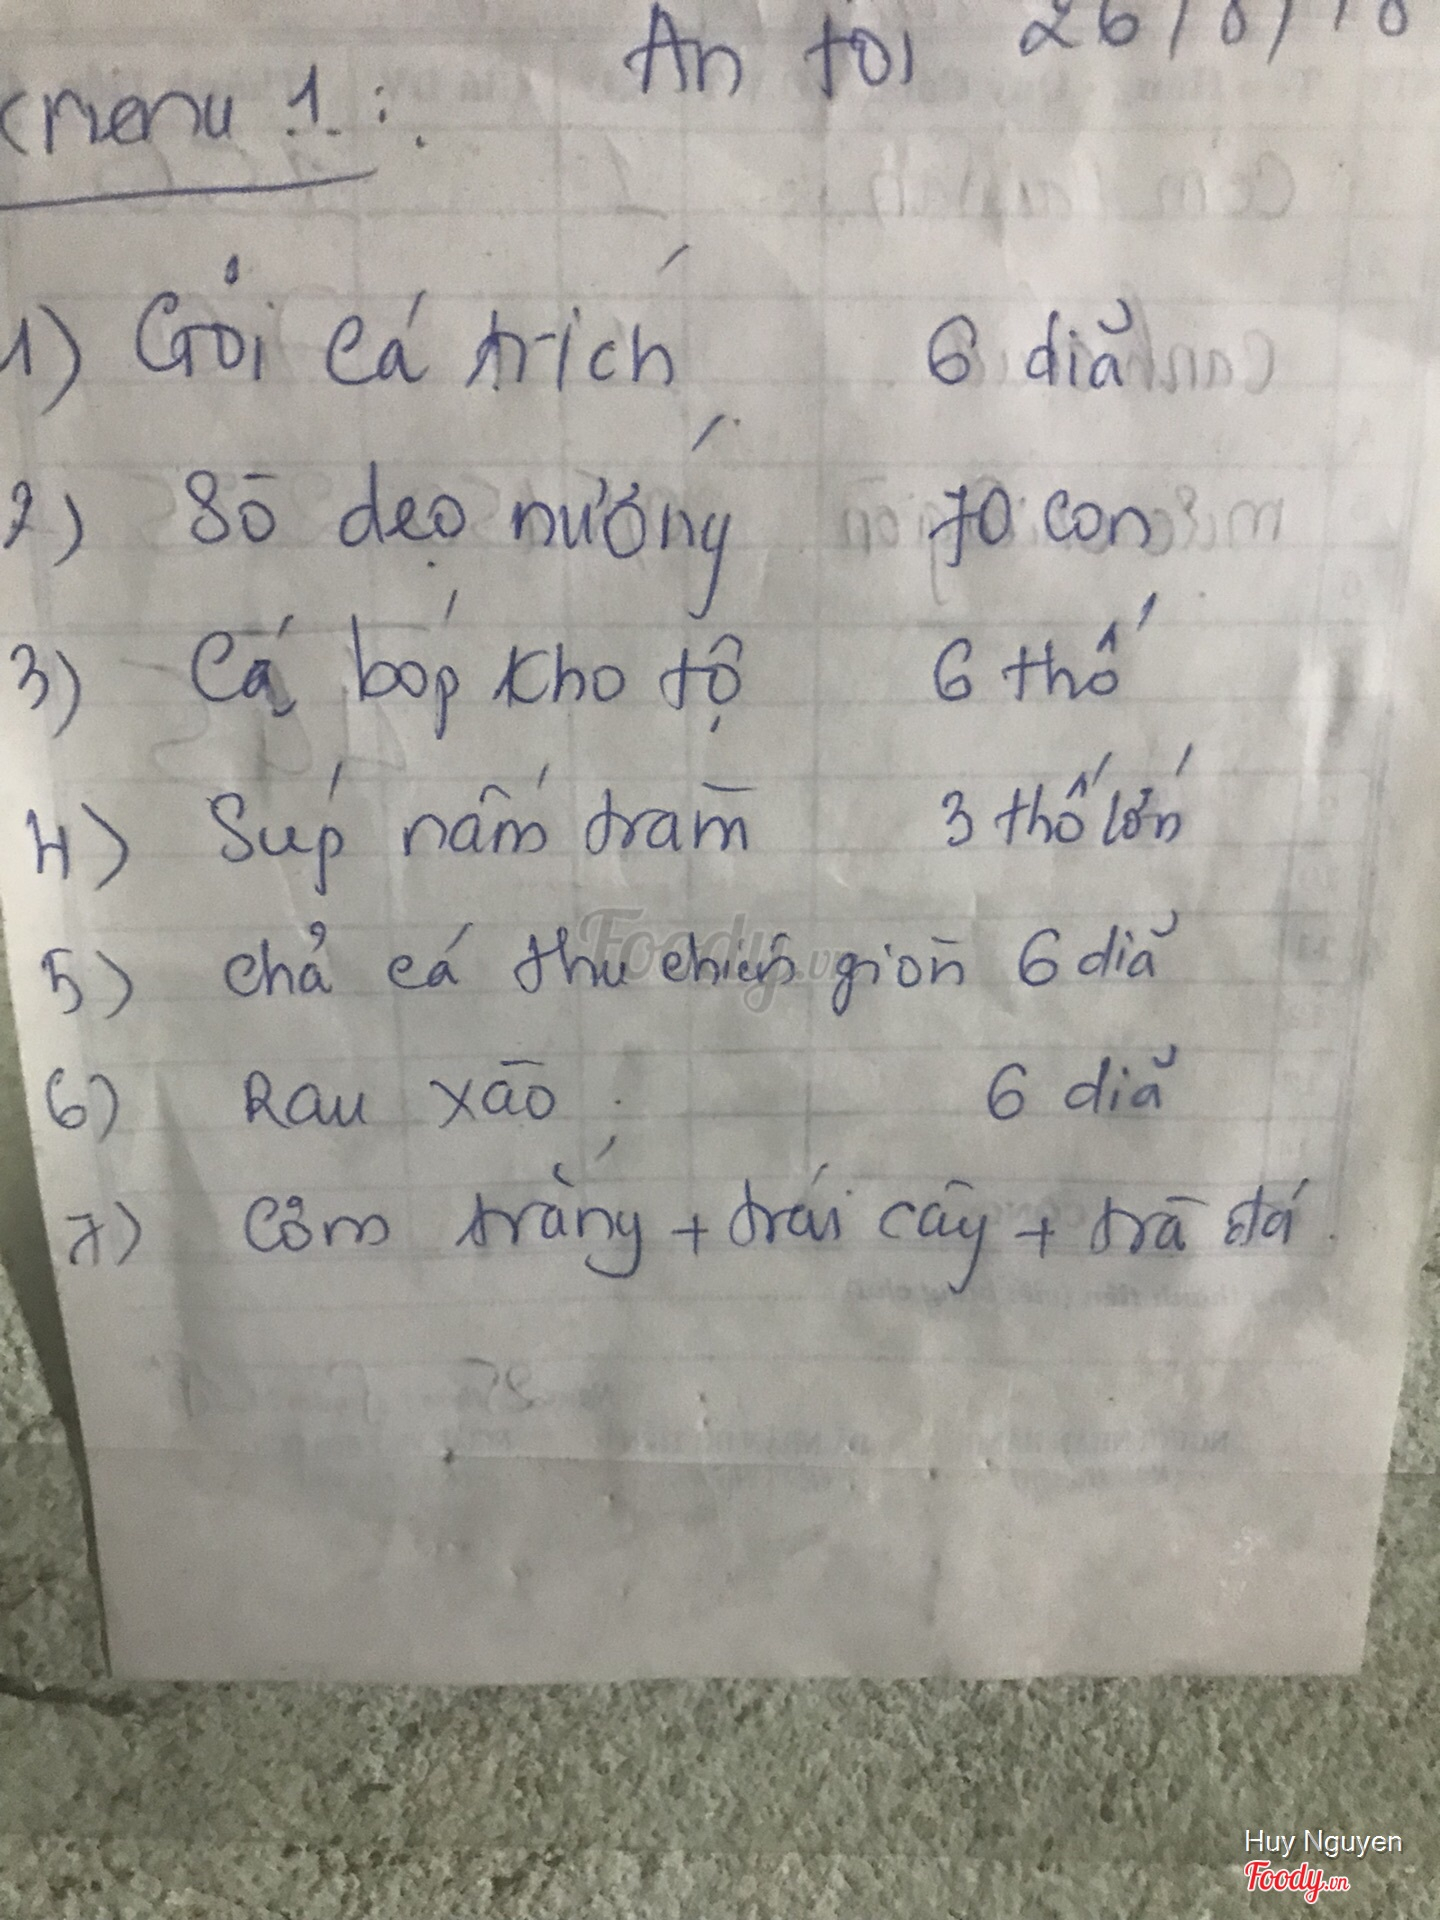 Ăn tối 26/8/18
Menu 1:
1) Gỏi cá trích 6 dĩa
2) Sò dẹo nướng 70 con
3) Cá bóp kho tộ 6 thố
4) Súp nấm tràm 3 thố lớn
5) Chả cá thu chiên giòn 6 dĩa
6) Rau xào 6 dĩa
7) Cơm trắng + trái cây + trà đá
Foody.vn
Huy Nguyen
Foody.vn